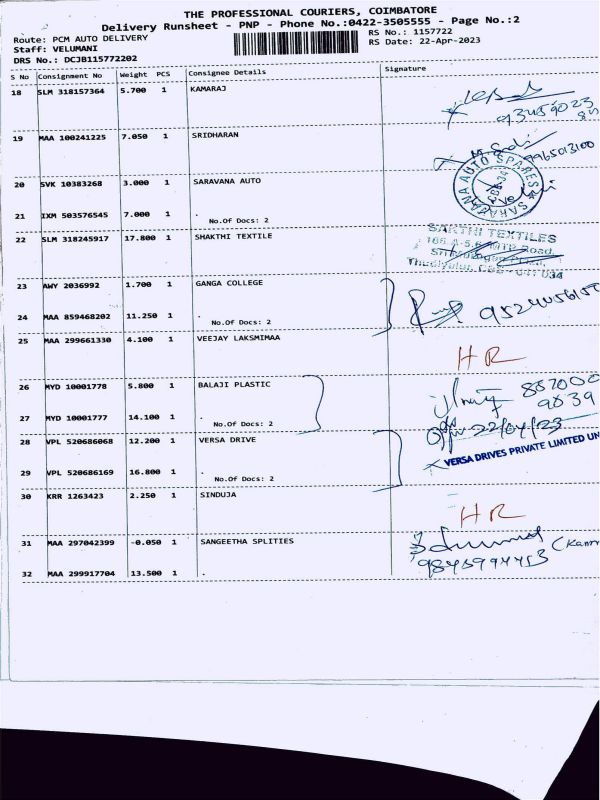 THE PROFESSIONAL COURIERS, COIMBATORE
Delivery Runsheet - PNP - Phone No.:0422-3505555 - Page No.:2
Route: PCM AUTO DELIVERY
RS No.: 1157722
Staff: VELUMANI
RS Date: 22-Apr-2023
DRS No.: DCJB115772202
S No Consignment No Weight PCS Consignee Details Signature
18 SLM 318157364 5.700 1 KAMARAJ
19 MAA 100241225 7.050 1 SRIDHARAN
9965013100
20 SVK 10383268 3.000 1 SARAVANA AUTO
SARAVANA AUTO SPARES
21 IXM 503576545 7.000 1 .
No.Of Docs: 2
22 SLM 318245917 17.800 1 SHAKTHI TEXTILE
SAKTHI TEXTILES
23 AWY 2036992 1.700 1 GANGA COLLEGE
24 MAA 859468202 11.250 1 .
No.Of Docs: 2
25 MAA 299661330 4.100 1 VEEJAY LAKSMIMAA
HR
26 MYD 10001778 5.800 1 BALAJI PLASTIC
27 MYD 10001777 14.100 1 .
No.Of Docs: 2
22/04/23
28 VPL 520686068 12.200 1 VERSA DRIVE
VERSA DRIVES PRIVATE LIMITED UN
29 VPL 520686169 16.800 1 .
No.Of Docs: 2
30 KRR 1263423 2.250 1 SINDUJA
HR
31 MAA 297042399 -0.050 1 SANGEETHA SPLITIES
32 MAA 299917704 13.500 1 .